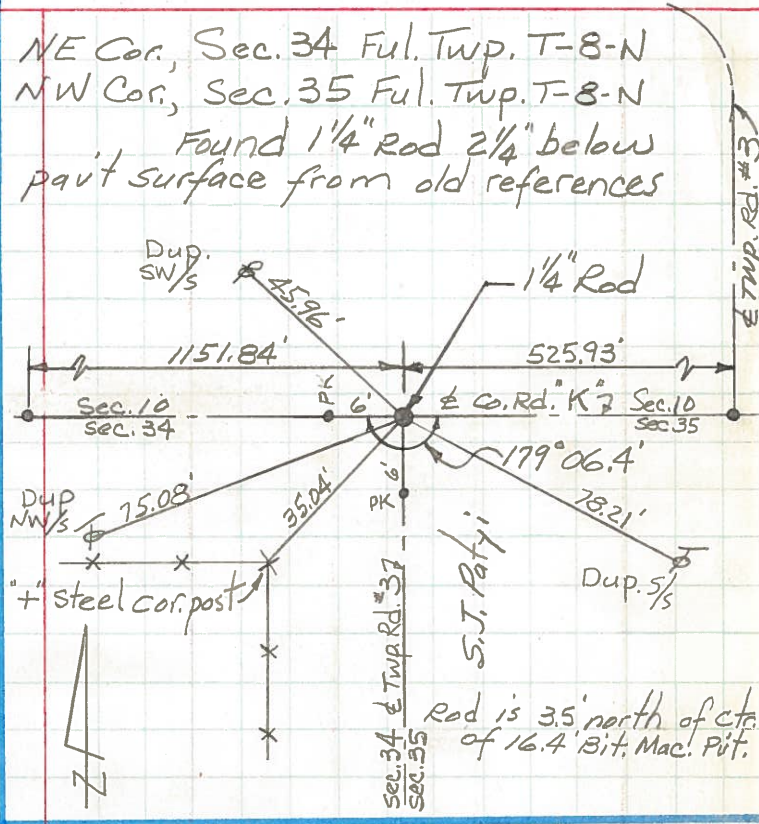 NE Cor., Sec. 34 Ful. Twp. T-8-N
NW Cor., Sec. 35 Ful. Twp. T-8-N
Found 1¼" Rod 2¼" below
pav't surface from old references
℄ Twp. Rd. #37
Dup. SW/s
45.96'
1¼" Rod
1151.84'
525.93'
Sec. 10
Sec. 34
PK
6'
℄ Co. Rd. "K" 7
Sec. 10
Sec. 35
179° 06.4'
Dup NW/s
75.08'
35.04'
PK
6'
78.21'
Dup. S/s
"+" steel cor. post
S.J. Patyi
Sec. 34 ℄ Twp. Rd. #37
Sec. 35
Rod is 3.5' north of ctr.
of 16.4' Bit. Mac. Pvt.